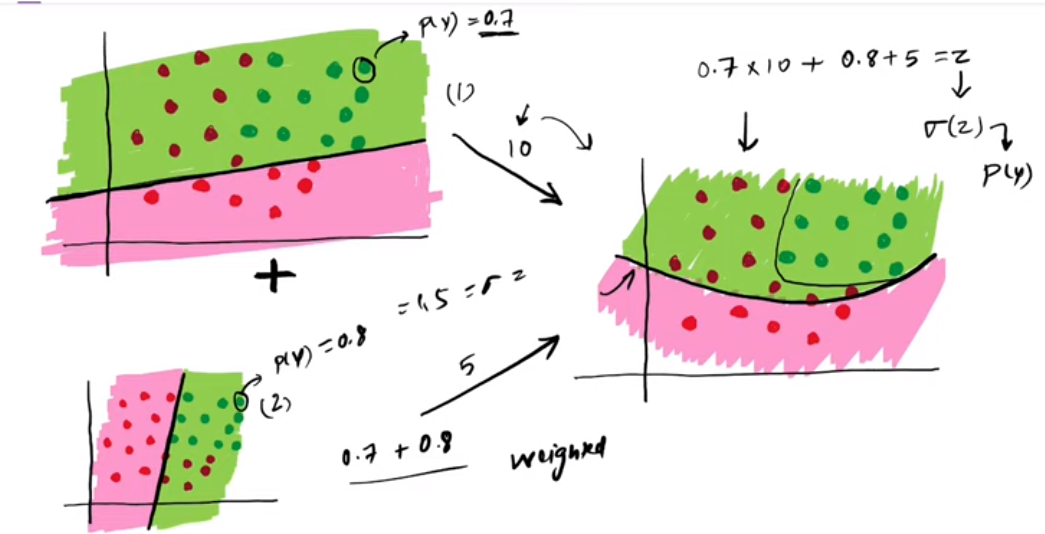 p(y) = 0.7
(1)
10
0.7 × 10 + 0.8 + 5 = z
σ(z)
p(y)
+
= 1.5 = σ z
p(y) = 0.8
(2)
5
0.7 + 0.8
weighted